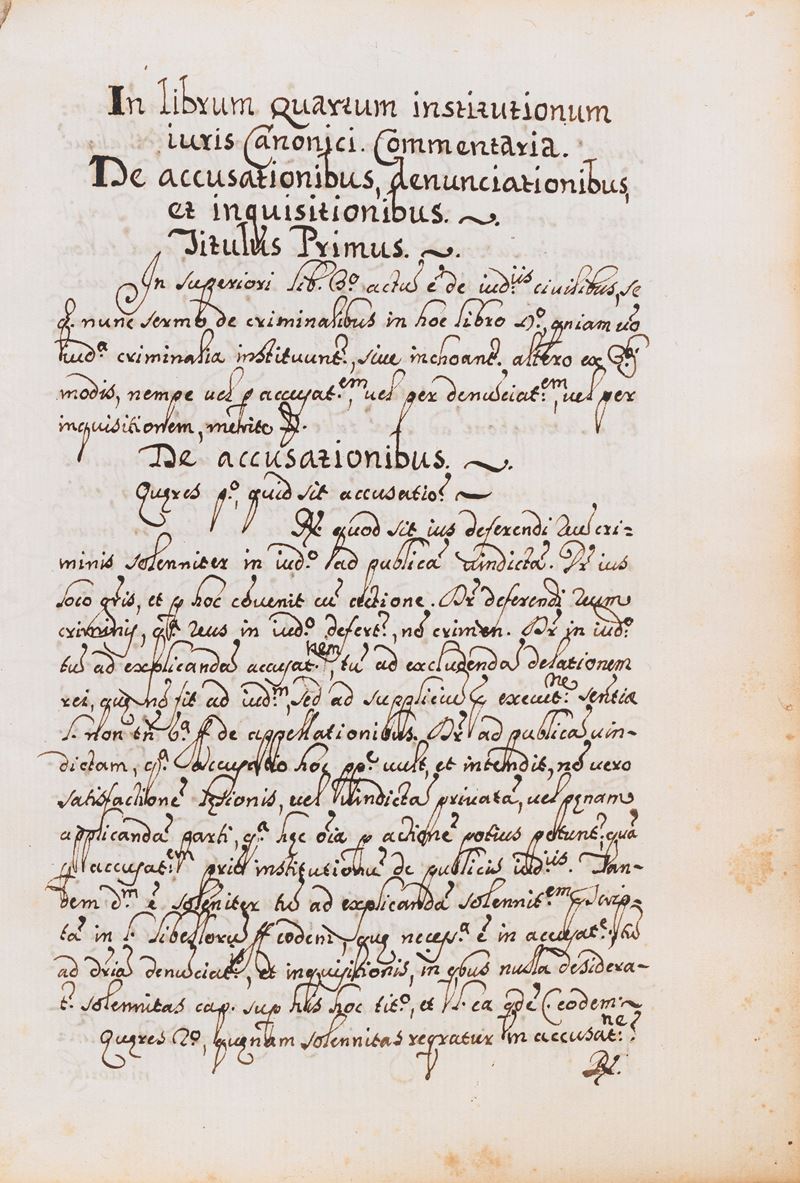 In librum quartum institutionum
iuris Canonici. Commentaria.
De accusationibus, denunciationibus,
et inquisitionibus.
Titulus Primus.
In superiori lib. 3º actũ ẽ de iudiis civilibus, se
q. nunc sermo de criminalibus in hoc libro 4º, qniam uo
iudª criminalia instituunt., siue inchoant. altero ex
modis, nempe uel p accusat.em, uel per denũciat.em, uel per
inquisitionem, merito
De accusationibus.
Quęres pº, quid sit accusatio?
R. quod sit ius deferendi Reũ cri=
minis solenniter in iudº ad publicã uindictã. Dr ius
loco gñis, et p hoc cõuenit cũ actione. Dr deferendi Reum
criminis, qª Reus in iudº defert., nõ crimen. Dr in iudº
tũ ad explicandã accusat.nem, tũ ad excludendã delationem
rei, quę nõ fit ad iudm, sed ad suppliciũ ex execut.ne sentiã
l. non tñ 6ª ff de appellationibus. Dr ad publicã uin-
dictam, qª accusatio hoc pp.e uult, et intendit, nõ vero
satisfactionẽ lęsionis, uel uindictã priuatã, uel pęnam
applicandã parti, qª hęc oĩa p actionẽ potius petunt., quã
p accusat.em institutionũ de publicis iudiis. Tan-
dem dm ẽ soleniter tũ ad explicandã solennit.em scrip-
tã in l. libellorũ ff eodem, quę necessª ẽ in accusat.e, tũ
ad driã denũciat., et inquisitionis, in qbus nulla desidera-
t. solennitas cap. sup his hoc tit.º, et l. ea qdẽ C. eodem
Quęres 2º, quęnam solennitas reqratur in accusat.ne?
R.